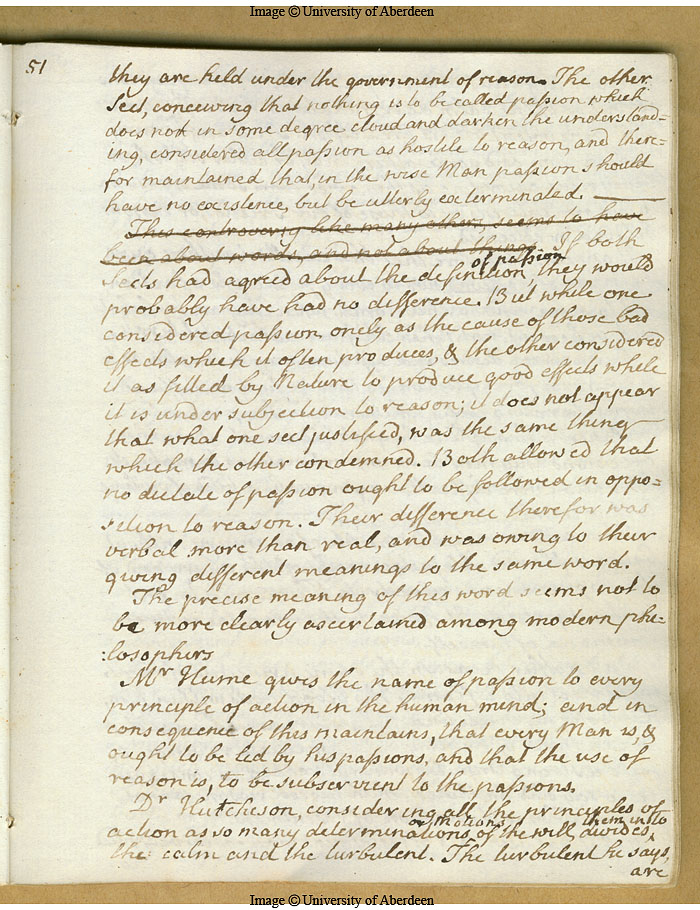 Image © University of Aberdeen
51
they are held under the government of reason. The other
Sect, conceiving that nothing is to be called paſsion which
does not in some degree cloud and darken the understand=
ing, considered all paſsion as hostile to reason, and there=
for maintained that, in the wise Man paſsion should
have no existence, but be utterly exterminated.
This controversy like many others, seems to have
been about words, and not about things. If both
of paſsion
Sects had agreed about the definition, they would
probably have had no difference. But while one
considered paſsion onely as the cause of those bad
effects which it often produces, & the other considered
it as fitted by Nature to produce good effects while
it is under subjection to reason; it does not appear
that what one sect justified, was the same thing
which the other condemned. Both allowed that
no dictate of paſsion ought to be followed in oppo=
sition to reason. Their difference therefor was
verbal more than real, and was owing to their
giving different meanings to the same word.
The precise meaning of this word seems not to
be more clearly ascertained among modern phi=
:losophers
Mr Hume gives the name of paſsion to every
principle of action in the human mind; and in
consequence of this maintains, that every Man is, &
ought to be led by his paſsions, and that the use of
reason is, to be subservient to the paſsions.
Dr Hutcheson, considering all the principles of
or motions them into
action as so many determinations of the will, divides
the calm and the turbulent. The turbulent he says,
are
Image © University of Aberdeen